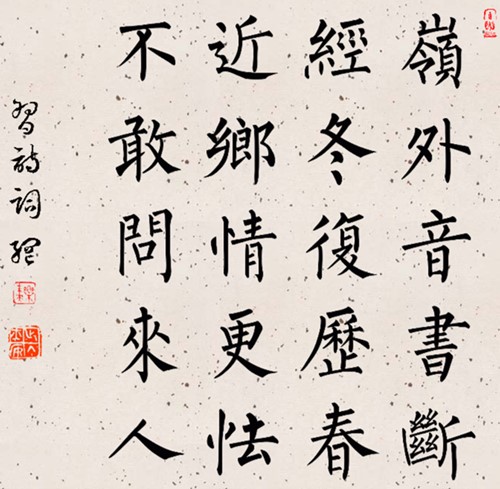 嶺外音書斷
經冬復歷春
近鄉情更怯
不敢問來人
習詩詞網